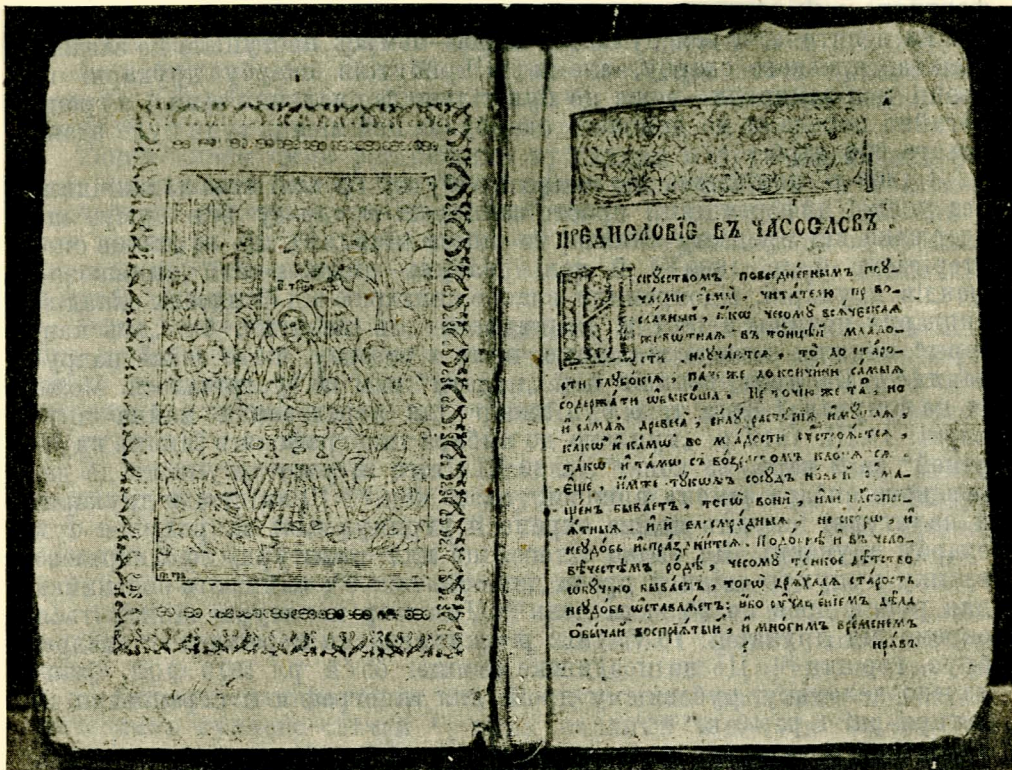 а҃
ПРЕДИСЛОВІЕ ВЪ ЧАСОСЛОВЪ.
Искуствомъ повседневнымъ поу-
чаеми есмы, читателю право-
славный, ꙗкѡ чесому всѧческаѧ
живѡтнаѧ въ тонцѣй младо-
сти научаютсѧ, то до старо-
сти глубокіѧ, паче же до кончины самыѧ
содержати ѡбыкоша. Не точію же та, но
и самаѧ древеса, силу растѣніѧ имущаѧ,
какѡ и камѡ во младости
такѡ и тамѡ съ возрастомъ клонѧтсѧ.
Еще, имже тукомъ сосудъ новый
щенъ бываетъ, тогѡ вони, или
ѧтныѧ, или ѕлосмрадныѧ, не скорѡ, и
неудобь испразднитсѧ. Подобнѣ и въ чело-
вѣчестѣмъ родѣ, чесому тонкое дѣтство
ѡбучено бываетъ, тогѡ дрѧхлаѧ старость
неудобь ѡставлѧетъ: ибо дѣла
Обычай воспріѧтый, и многимъ временемъ
нравъ